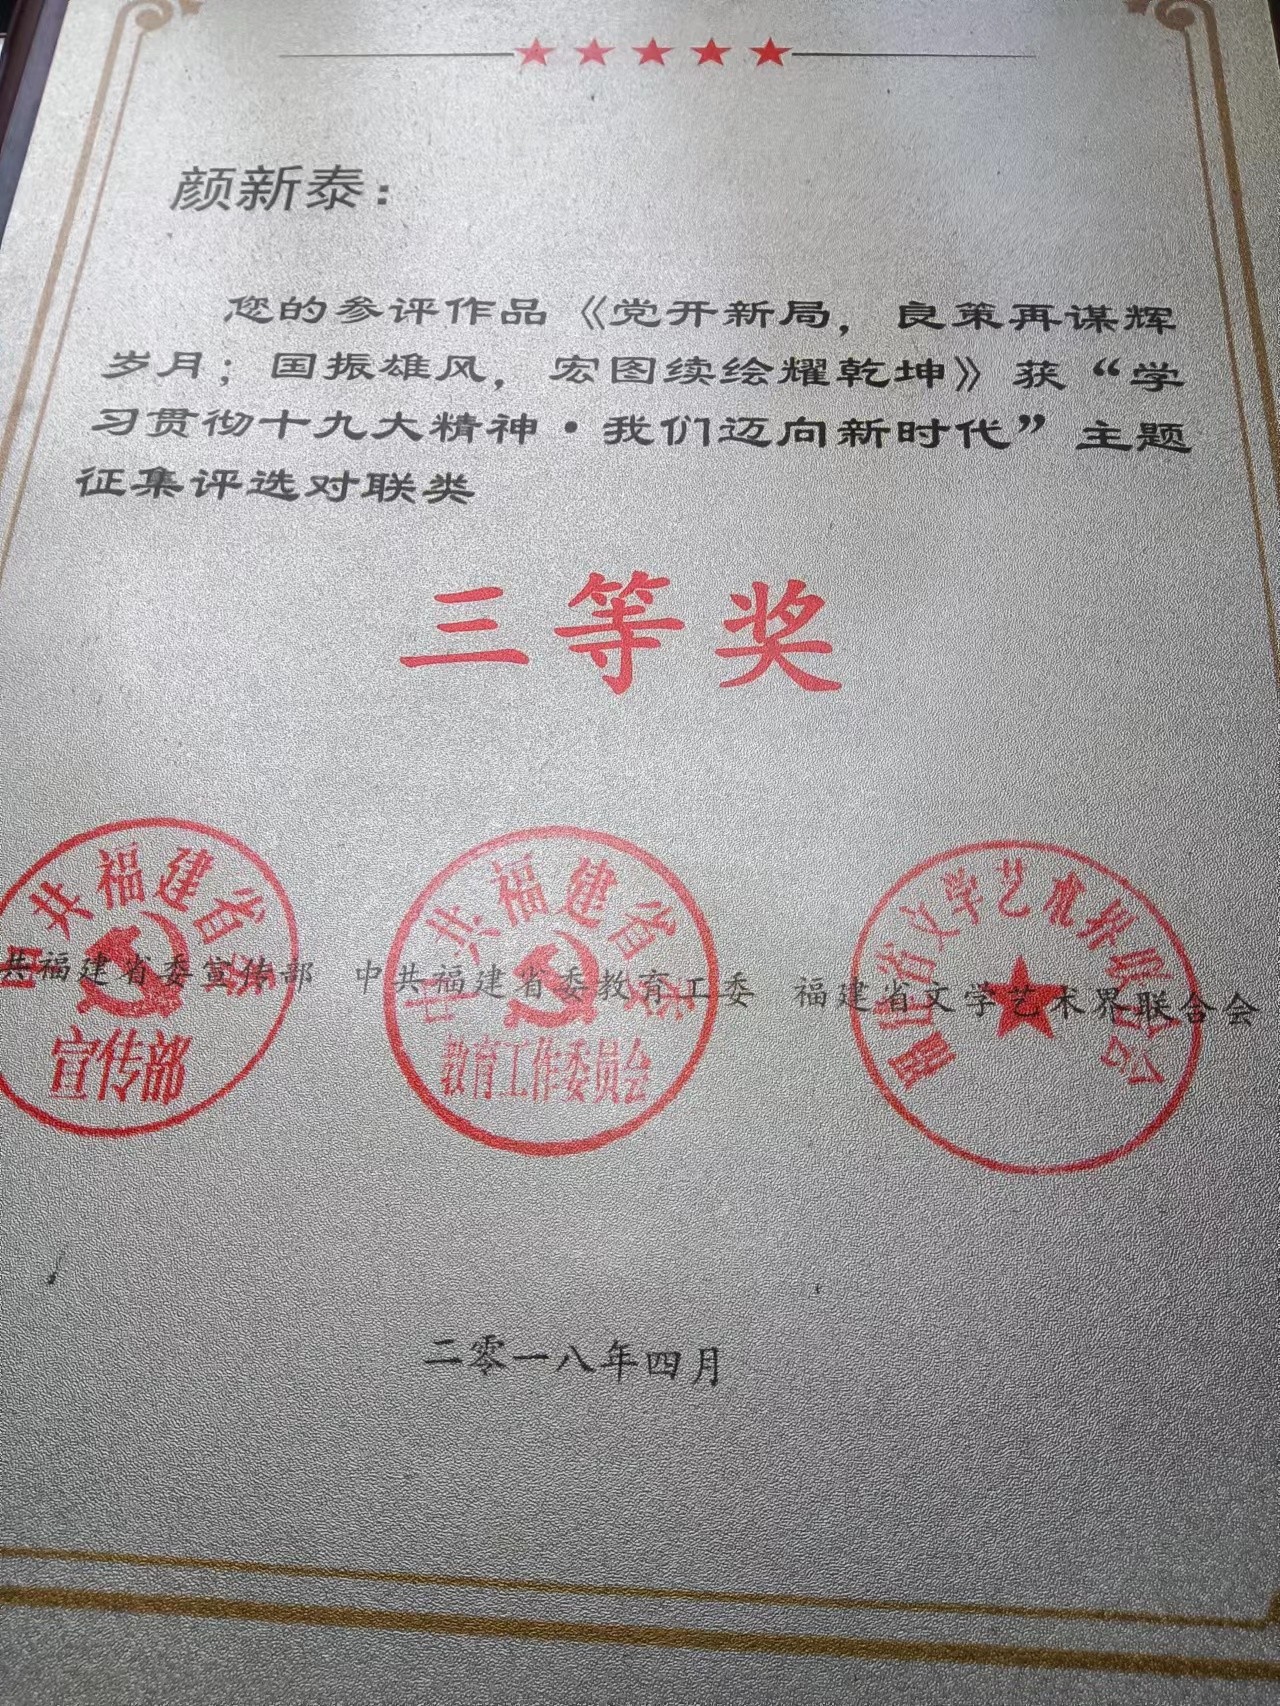 颜新泰：
您的参评作品《党开新局，良策再谋辉
岁月；国振雄风，宏图续绘耀乾坤》获“学
习贯彻十九大精神·我们迈向新时代”主题
征集评选对联类
三等奖
共福建省委宣传部 中共福建省委教育工委 福建省文学艺术界联合会
中共福建省委
宣传部
中共福建省委
教育工作委员会
福建省文学艺术界联合会
二零一八年四月